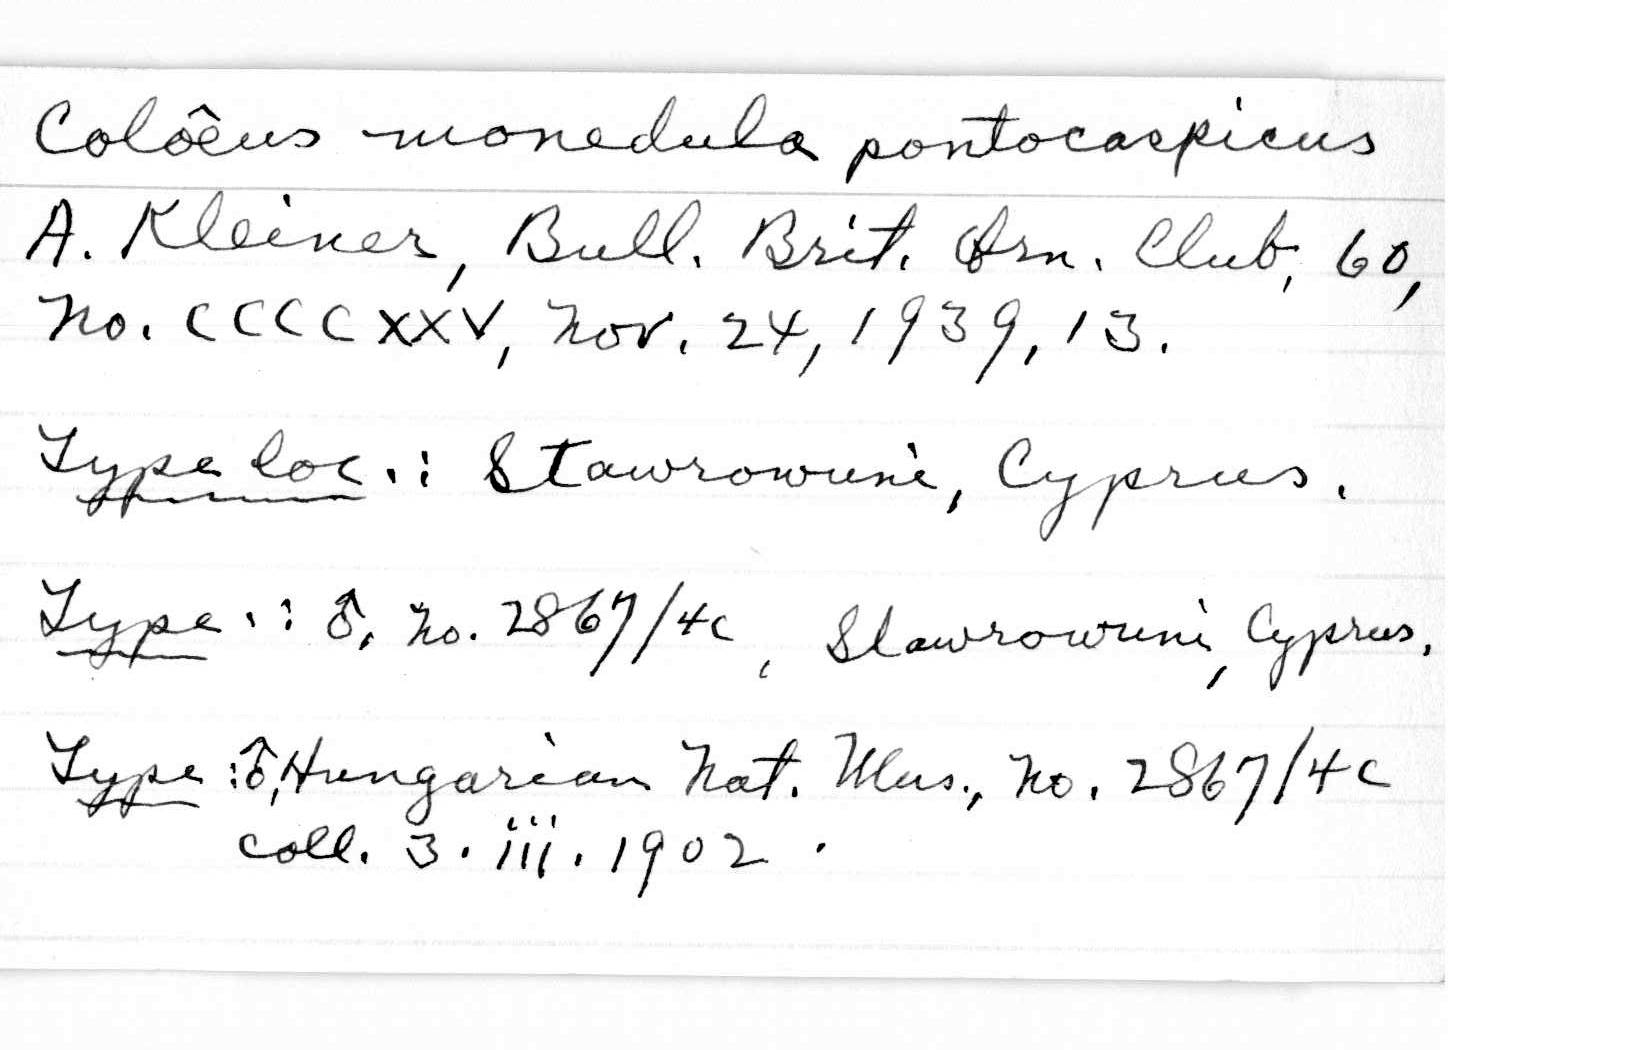 Colôeus monedula pontocaspicus
A. Kleiner, Bull. Brit. Orn. Club, 60,
No. CCCCXXV, Nov. 24, 1939, 13.
Type loc.: Stawrowuni, Cyprus.
Type.: ♂, No. 2867/4c, Stawrowuni, Cyprus.
Type: ♂, Hungarian Nat. Mus., No. 2867/4c
coll. 3.iii.1902.